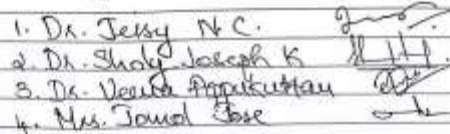 1. Dr. Jessy N.C.
2. Dr. Sholy Joseph K
3. Dr. Veena Appukuttan
4. Mrs. Jomol Jose